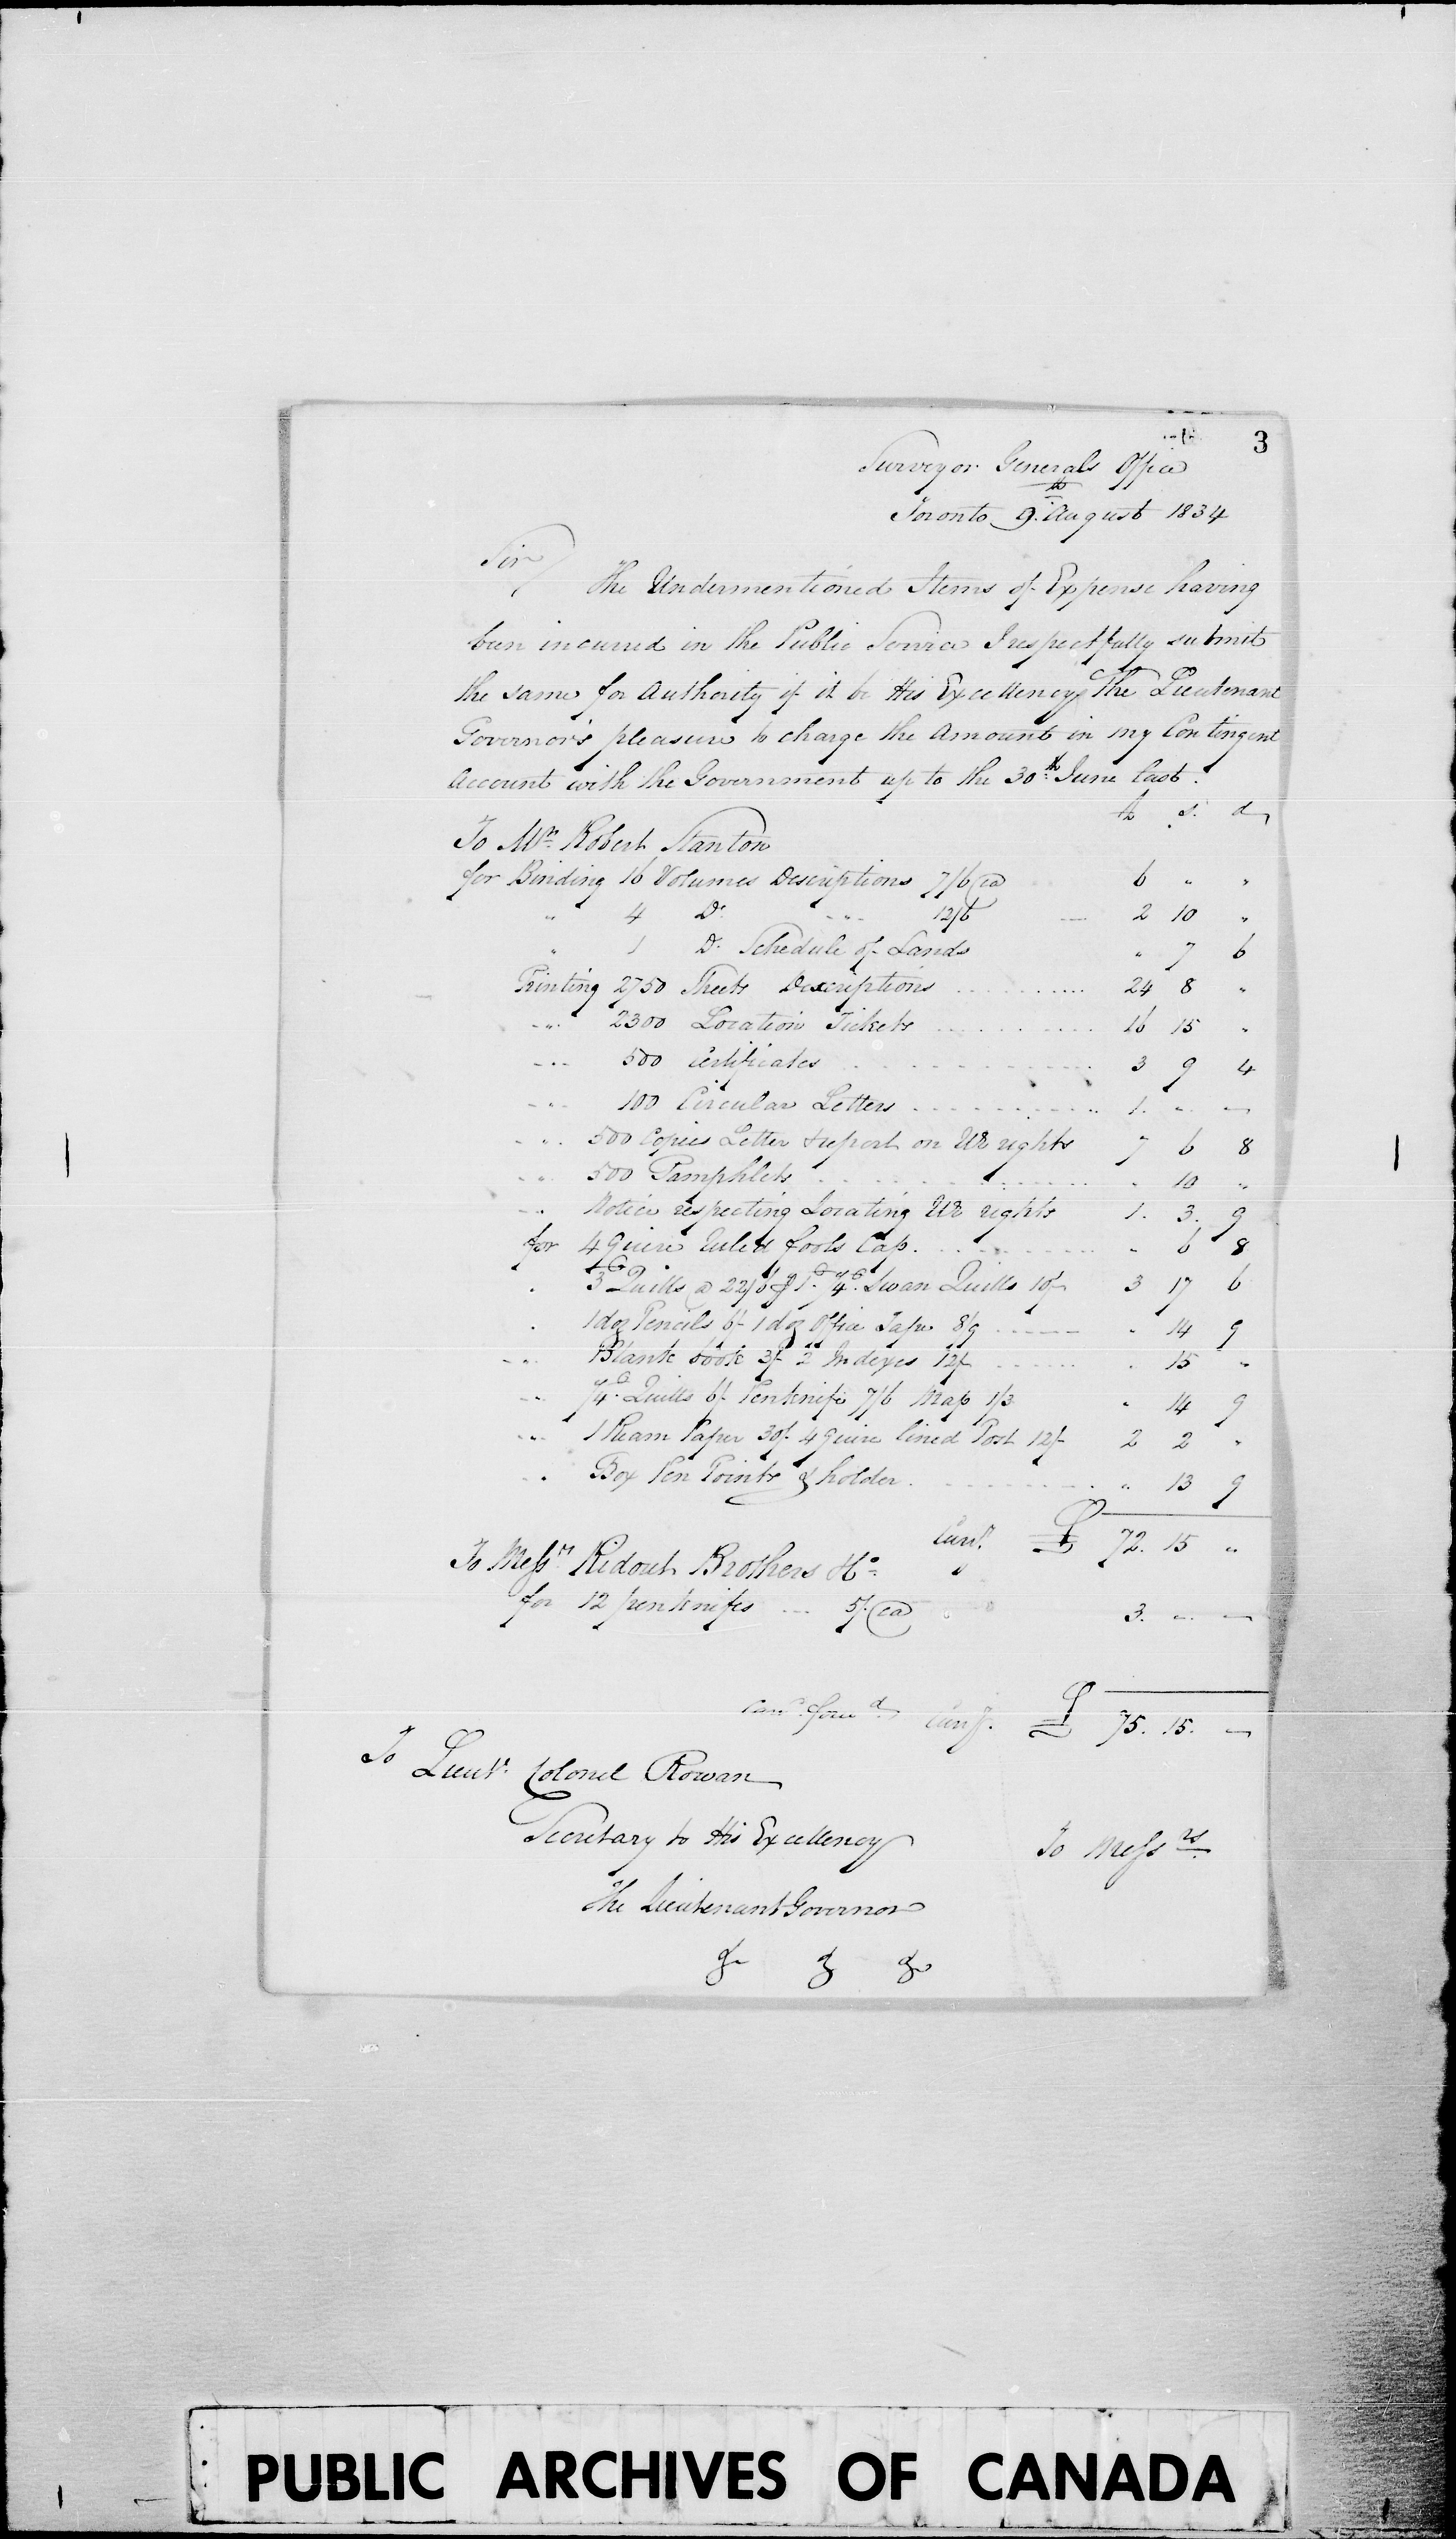 3
Surveyor Generals Office
Toronto 9th August 1834
Sir/
The Undermentioned Items of Expense having
been incurred in the Public Service I respectfully submit
the same for Authority if it be His Excellency The Lieutenant
Governor's pleasure to charge the Amount in my Contingent
Account with the Government up to the 30th June last.
£ s. d
To Mr. Robert Stanton
for Binding 16 Volumes Descriptions 7/6 ea 6 " "
" 4 Do. " 12/6 2 10 "
" 1 Do. Schedule of Lands " 7 6
Printing 2750 Sheets Descriptions 24 8 "
" 2300 Location Tickets 16 15 "
" 500 Certificates 3 9 4
" 100 Circular Letters 1. " —
" 500 Copies Letter & report on UE rights 7 6 8
" 500 Pamphlets " 10 "
" Notice respecting Locating UE rights 1. 3. 9
for 4 Quire Ruled fools Cap. " 6 8
" 3 C Quills @ 22/6 & 1. /4 C. Swan Quills 10/- 3 17 6
" 1 doz Pencils 6/- 1 doz Office Tape 8/9 " 14 9
" Blank book 3/- 2 Indexes 12/- " 15 "
" /4 C. Quills 6/- Penknife 7/6 Map 1/3 " 14 9
" 1 Ream Paper 30/- 4 Quire lined Post 12/- 2 2 "
" Box Pen Points & holder. " 13 9
Curry. £ 72. 15 "
To Messrs Ridout Brothers & Co.
for 12 penknifes 5/- ea 3. " —
Card. forwd. Curry. £ 75. 15. —
To Lieut. Colonel Rowan
Secretary to His Excellency
The Lieutenant Governor
&c &c &c
To Messrs
PUBLIC ARCHIVES OF CANADA